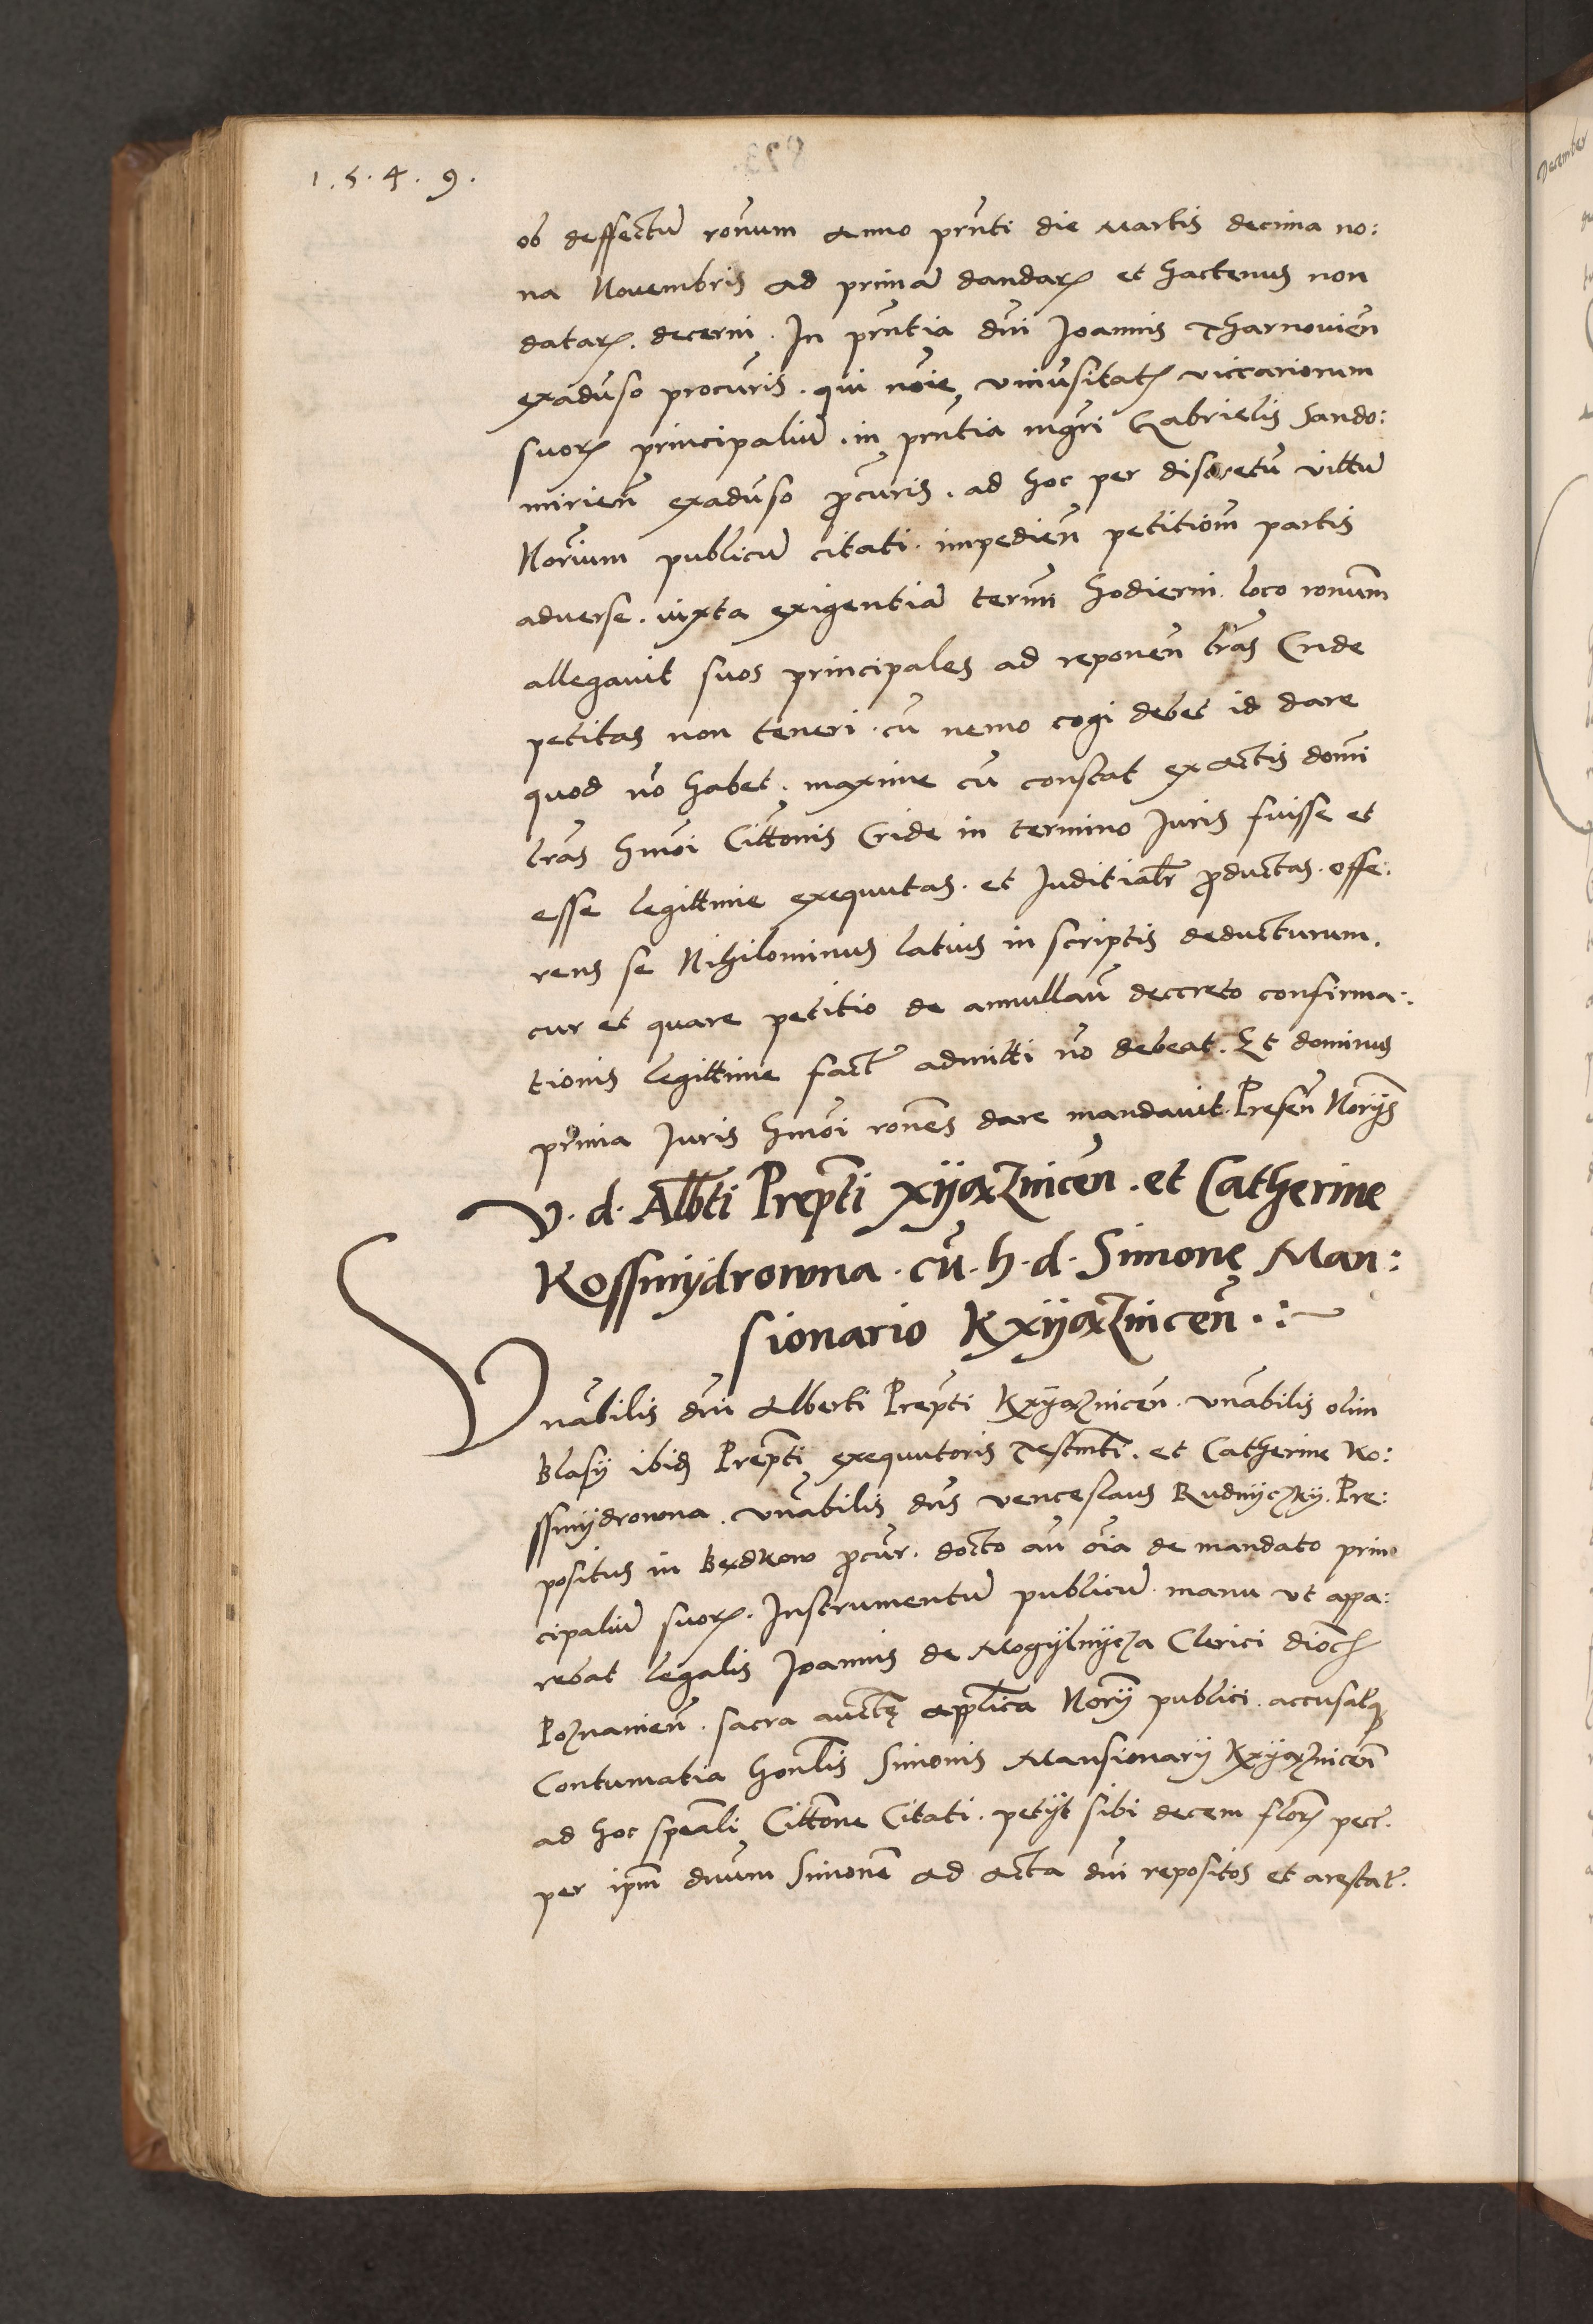 1.5.4.9.
ob deffectu̅ ronum Anno prn̅ti die Martis decima no:
na Novembris ad prima̅ dandarꝝ et hactenus non
datarꝝ. decerni. In prn̅tia dn̅i Joannis Tharnovien̅
exaduso procuris. qui noi̅e universitatꝭ viccariorum
suorꝝ principaliu̅. in prn̅tia mgr̅i Gabrielis Sando:
mirien̅ exaduso ꝓcuris. ad hoc per discretu̅ vittu̅
Norium publicu̅ citati. impedien̅ petitiom̅ partis
adverse. iuxta exigentia̅ termi̅ hodierni. loco ronum̅
allegavit suos principales ad reponen̅ lr̅as Cride
petitas non teneri. cu̅ nemo cogi debet id dare
quod no̅ habet. maxime cu̅ constat ex actis domi̅
lr̅as hmoi̅ Citto̅nis Cride in termino Juris fuisse et
esse legittime exequutas. et Juditialr̅ ꝓductas. offe:
rens se Nihilominus latius in scriptis deducturum.
cur et quare petitio de annullan̅ deccreto confirma:
tionis legittime fact̅ admitti no̅ debeat. Et dominus
prima Juris hmoi̅ rones̅ dare mandavit. Presen̅ Norys̅
V. d. Alb̅ti Prep̅ti Xijaznicen̅. et Catherine
Kossmydrowna. cu̅. h. d. Simone Man:
sionario Kxijaznicen̅.:~
Vn̅abilis dn̅i Alberti Prep̅ti Kxijaznicen̅. vn̅abilis olim
Blasij ibid̅ Prep̅ti exequutoris Testm̅ti. et Catherine Ko:
ssmydrowna. vn̅abilis dn̅s venceslaus Rudnyczky. Pre:
positus in Bedkow ꝓcur̅. docto an̅ oi̅a de mandato prin
cipaliu̅ suorꝝ. Instrumentu̅ publicu̅. manu ut appa:
rebat legalis Joannis de Mogylnycza Clerici dioc̅
Poznanien̅. sacra auct̅e appl̅ica Nory̅ publici. accusatqꝫ
Contumatia honl̅is Simonis Mansionarij Kxijaznicen̅
ad hoc spea̅li Citto̅ne Citati. petijt sibi decem florꝝ pec̅.
per ipm̅ dn̅um Simone̅ ad Acta dn̅i repositos et arestat̅.